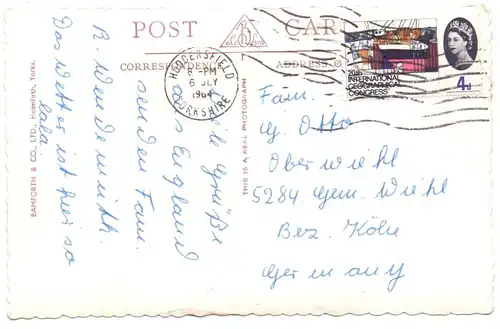 POST CARD
CORRESPONDENCE
ADDRESS O
HUDDERSFIELD
8 - PM
6 JLY
1964
YORKSHIRE
20th INTERNATIONAL
GEOGRAPHICAL
CONGRESS
4d
BAMFORTH & CO., LTD., Holmfirth, Yorks.
THIS IS A REAL PHOTOGRAPH
Viele Grüße
aus England
senden Fam.
Das Wetter ist hier so
lala
Fam.
G. Otto
Oberwiehl
5284 Gem. Wiehl
Bez. Köln
Germany